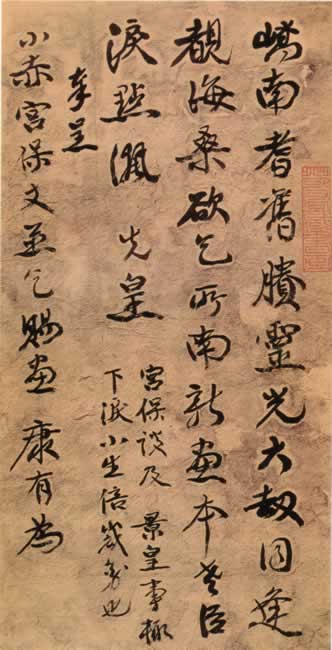 嶠南耆舊賸靈光大劫同逢
覩海桑欲乞所南新畫本老臣
淚點先皇
宮保談及 景皇事輒
下淚小生倍也
奉呈
小赤宮保丈並乞賜畫 康有為